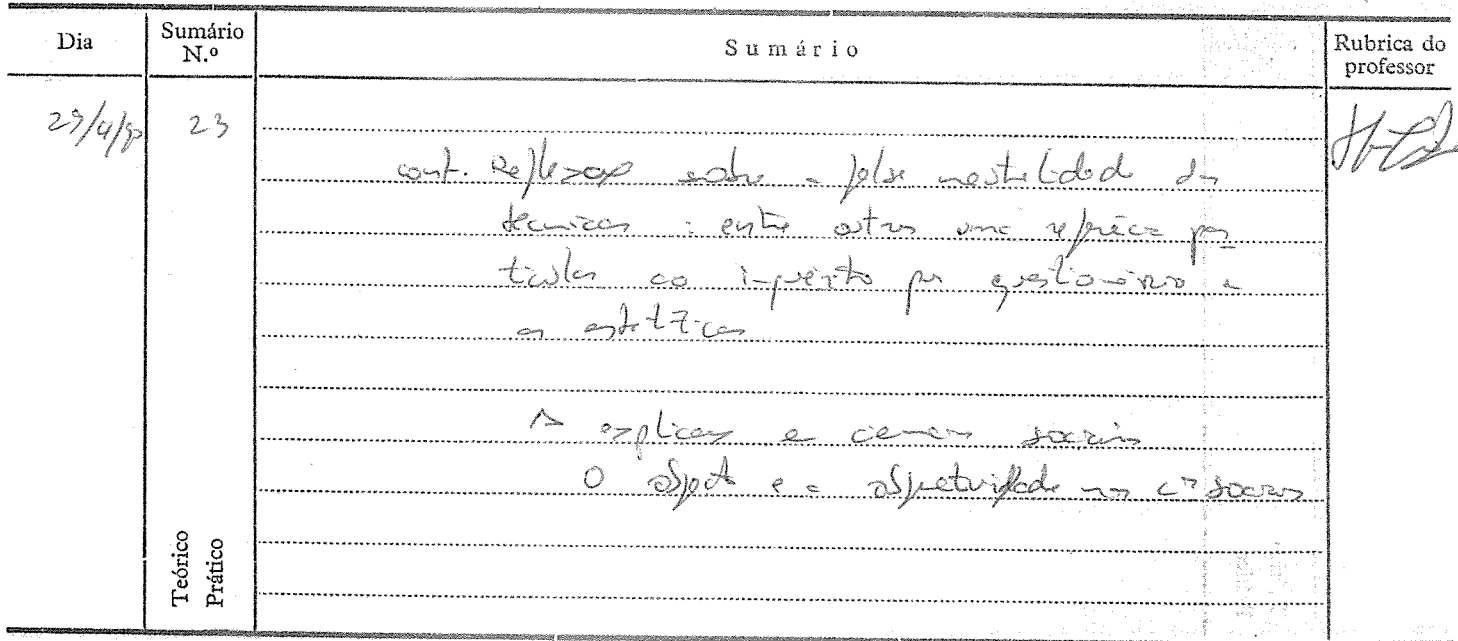 Dia
Sumário N.º
Sumário
Rubrica do professor
23
cont. Reflexões sobre a falsa neutralidade das
técnicas : entre outras uma referência par-
ticular ao inquérito por questionário e
as estatísticas
A explicação e ciências sociais
O objecto e a objectividade nas cªs sociais
Teórico
Prático